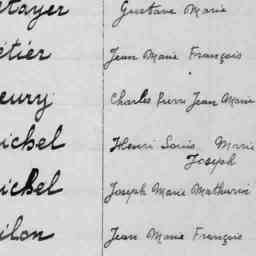 tayer Gustave Marie
étier Jean Marie François
eury Charles Pierre Jean Marie
ichel Henri Louis Marie
Joseph
ichel Joseph Marie Mathurin
ilon Jean Marie François